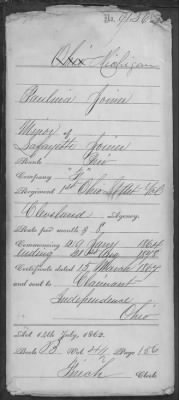 Ohio Michigan
Paulina Joiner
Minor of
Lafayette Joiner
Rank
Company "F"
Regiment 1st Ohio
Cleveland Agency.
Rate per month $ 8/
Commencing 29 Jany 1864
Ending 1st
Certificate dated 15 March 1867
and sent to Claimant
Independence
Ohio
Act 14th July, 1862.
Book B Vol Page 156
Clerk